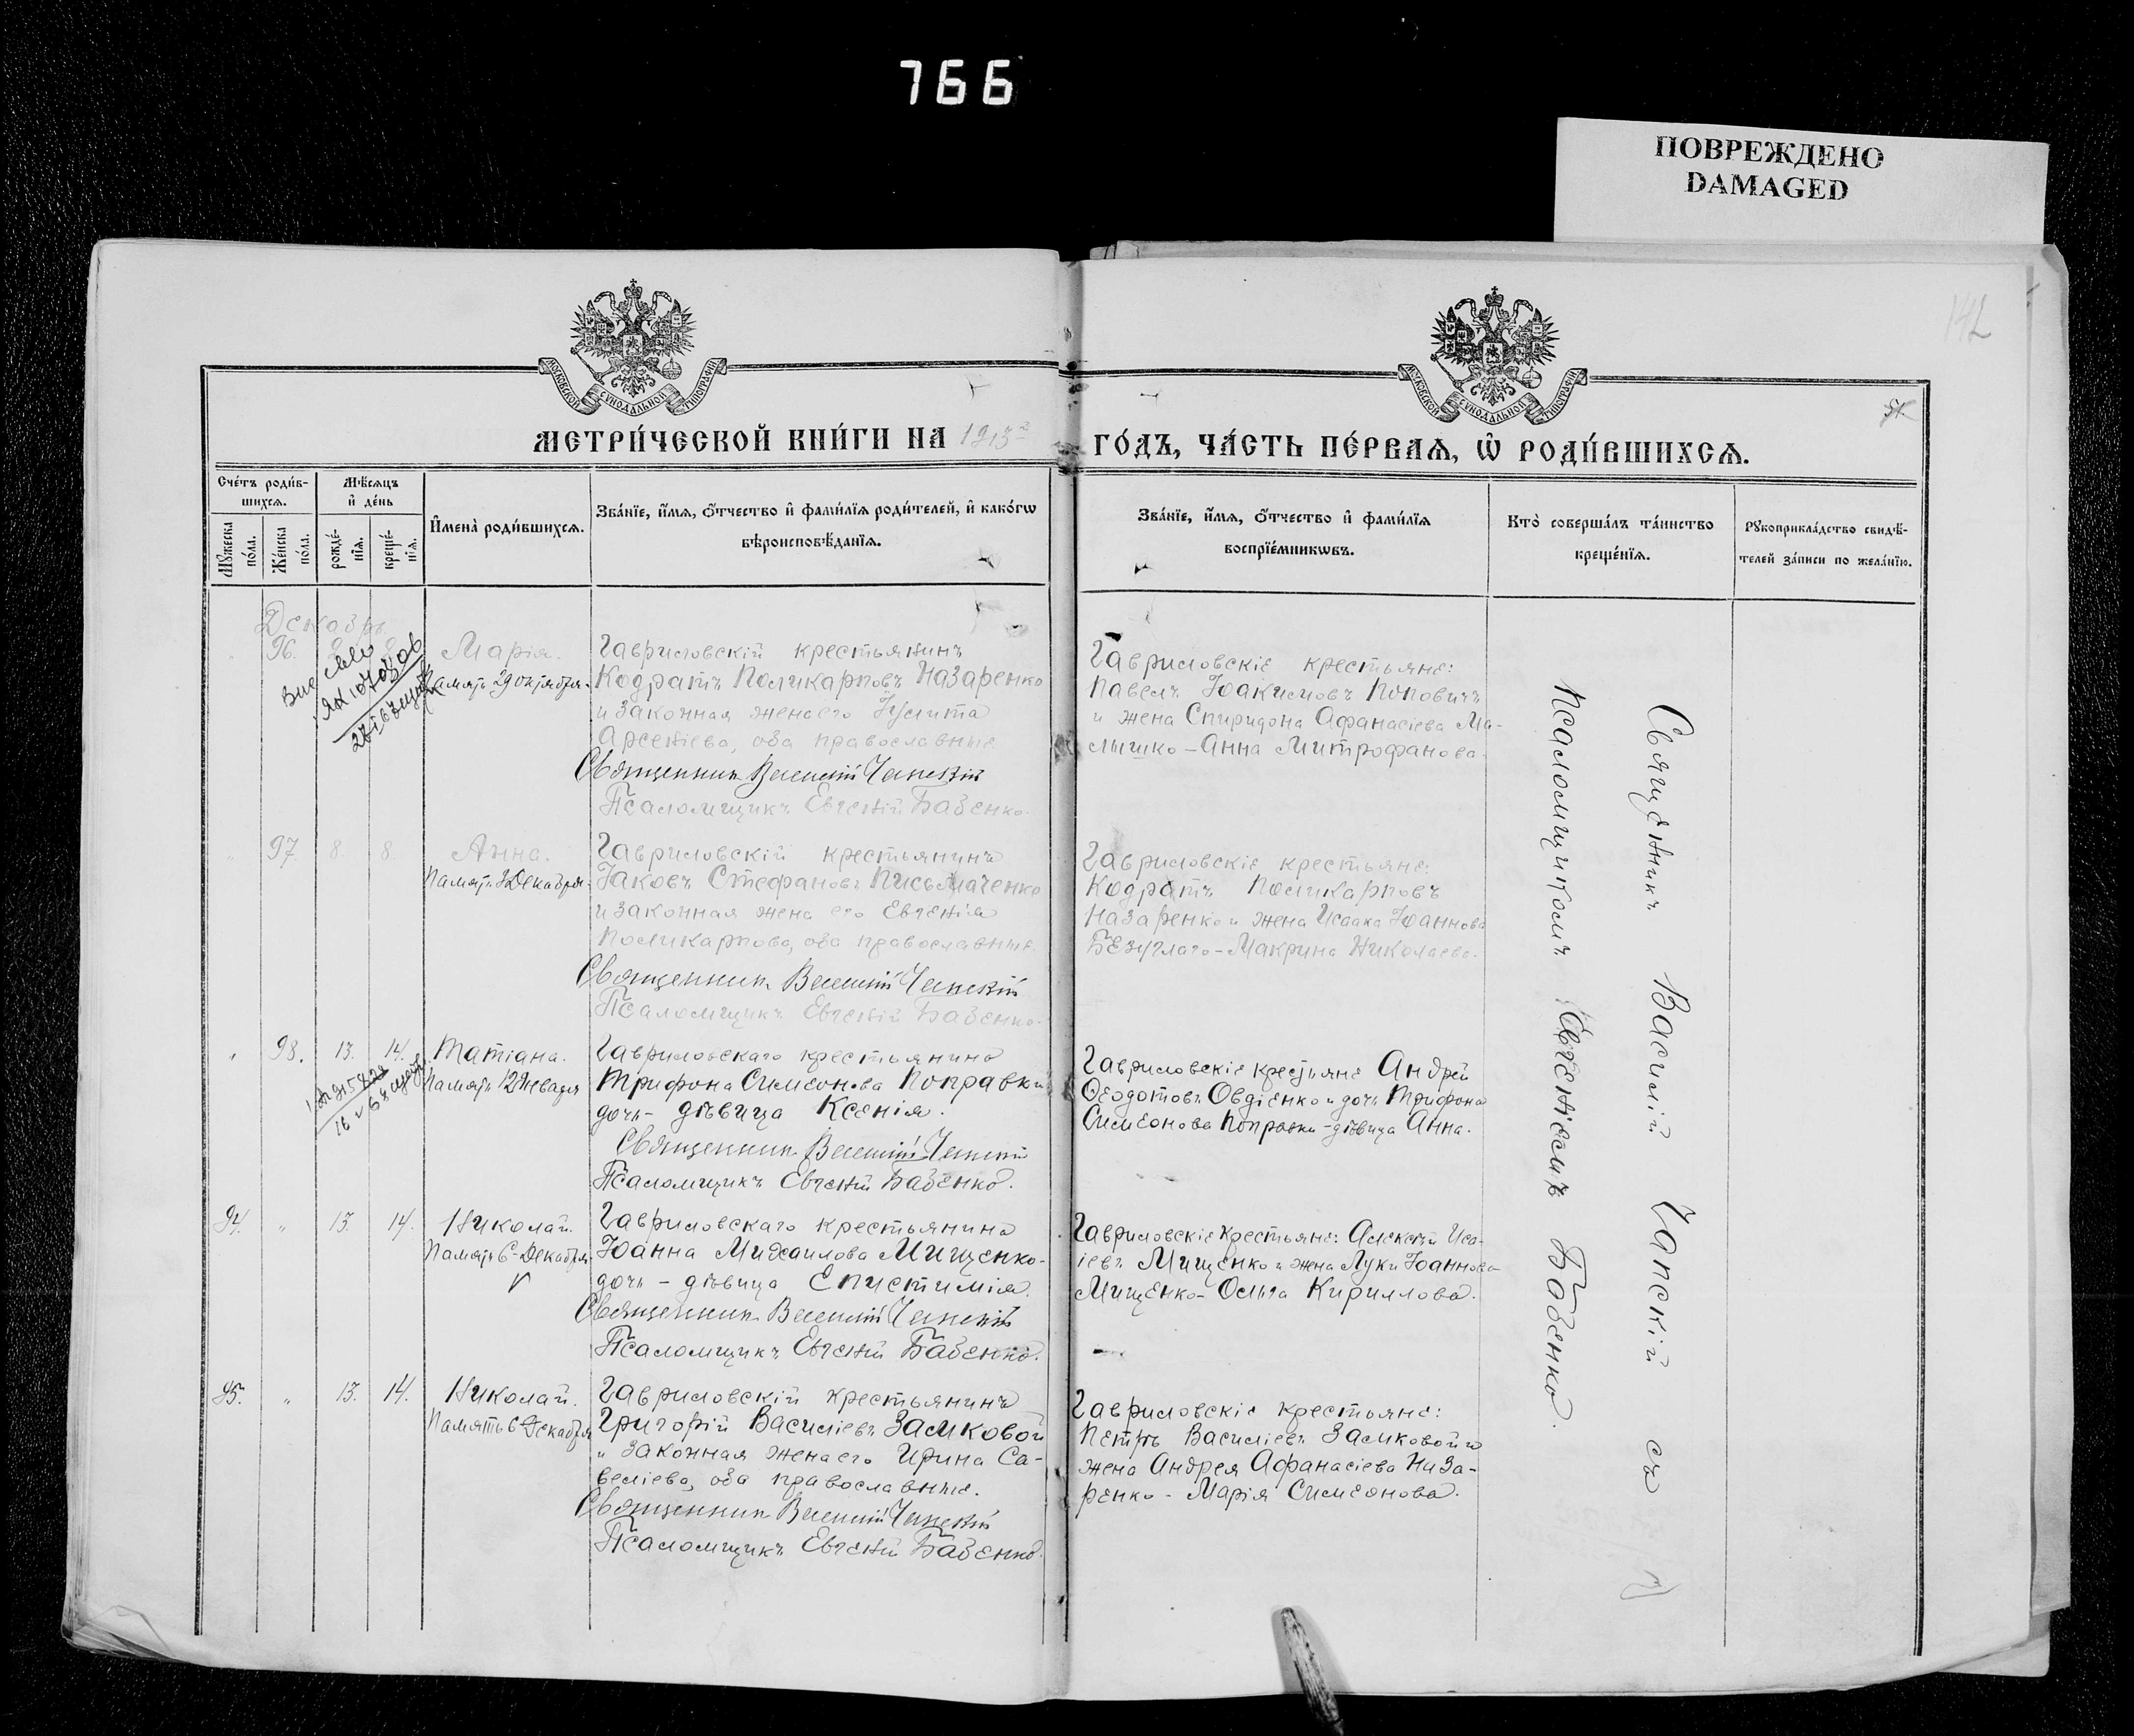 766
ПОВРЕЖДЕНО
DAMAGED
142
51
МОСКОВСКОЙ СѴНОДАЛЬНОЙ ТИПОГРАФІИ
МОСКОВСКОЙ СѴНОДАЛЬНОЙ ТИПОГРАФІИ
МЕТРИ́ЧЕСКОЙ КНИ́ГИ НА 1913 ГО́ДЪ, ЧА́СТЬ ПЕ́РВАѦ, Ѡ҆ РОДИ́ВШИХСѦ.
Сче́тъ роди́в-
шихсѧ.
Мѣ́сѧцъ
и҆ де́нь
Мꙋ́жеска
по́ла.
Же́нска
по́ла.
рожде́-
нїѧ.
креще́-
нїѧ.
И҆мена̀ роди́вшихсѧ.
Зва́нїе, и҆́мѧ, ѻ҆́тчество и҆ фами́лїѧ роди́телей, и҆ како́гѡ
вѣроисповѣ́данїѧ.
Зва́нїе, и҆́мѧ, ѻ҆́тчество и҆ фами́лїѧ
воспрїе́мникѡвъ.
Кто̀ соверша́лъ та́инство
креще́нїѧ.
Рꙋкоприкла́дство свидѣ́-
телей за́писи по жела́нїю.
Декабрь
96.
8
Марія.
Память 29 октября.
Гавриловскій крестьянинъ
Кодратъ Поликарповъ Назаренко
и законная жена его
Арсеніева, оба православные
Священникъ Василій Чапскій
Псаломщикъ Евгеній Бабенко.
Гавриловскіе крестьяне:
Павелъ Іоакимовъ Поповичъ
и жена Спиридона Афанасіева Ма-
лышко - Анна Митрофанова.
97. 8. 8.
Анна.
Память 9 Декабря.
Гавриловскій крестьянинъ
Іаковъ Стефановъ Письмаченко
и законная жена его Евгенія
Поликарпова, оба православные.
Священникъ Василій Чапскій
Псаломщикъ Евгеній Бабенко.
Гавриловскіе крестьяне:
Кодратъ Поликарповъ
Назаренко и жена Исаака Іоаннова
Безуглаго - Макрина Николаева.
" 98. 13. 14.
Татіана.
Память 12 Января
Гавриловскаго крестьянина
Трифона Симеонова Поправки
дочь - дѣвица Ксенія.
Священникъ Василій Чапскій
Псаломщикъ Евгеній Бабенко.
Гавриловскіе крестьяне Андрей
Ѳеодотовъ Овдіенко и дочь Трифона
Симеонова Поправки - дѣвица Анна.
94. " 13. 14.
Николай.
Память 6 Декабря.
Гавриловскаго крестьянина
Іоанна Михаилова Мищенко -
дочь - дѣвица Епистимія.
Священникъ Василій Чапскій
Псаломщикъ Евгеній Бабенко.
Гавриловскіе крестьяне: Алексѣй Иса-
іевъ Мищенко и жена Луки Іоаннова
Мищенко - Ольга Кириллова.
95. " 13. 14.
Николай.
Память 6 Декабря
Гавриловскій крестьянинъ
Григорій Василіевъ Замковой
и законная жена его Ирина Са-
веліева, оба православные.
Священникъ Василій Чапскій
Псаломщикъ Евгеній Бабенко.
Гавриловскіе крестьяне:
Петръ Василіевъ Замковой и
жена Андрея Афанасіева Наза-
ренко - Марія Симеонова.
Священникъ Василій Чапскій съ
Псаломщикомъ Евгеніемъ Бабенко